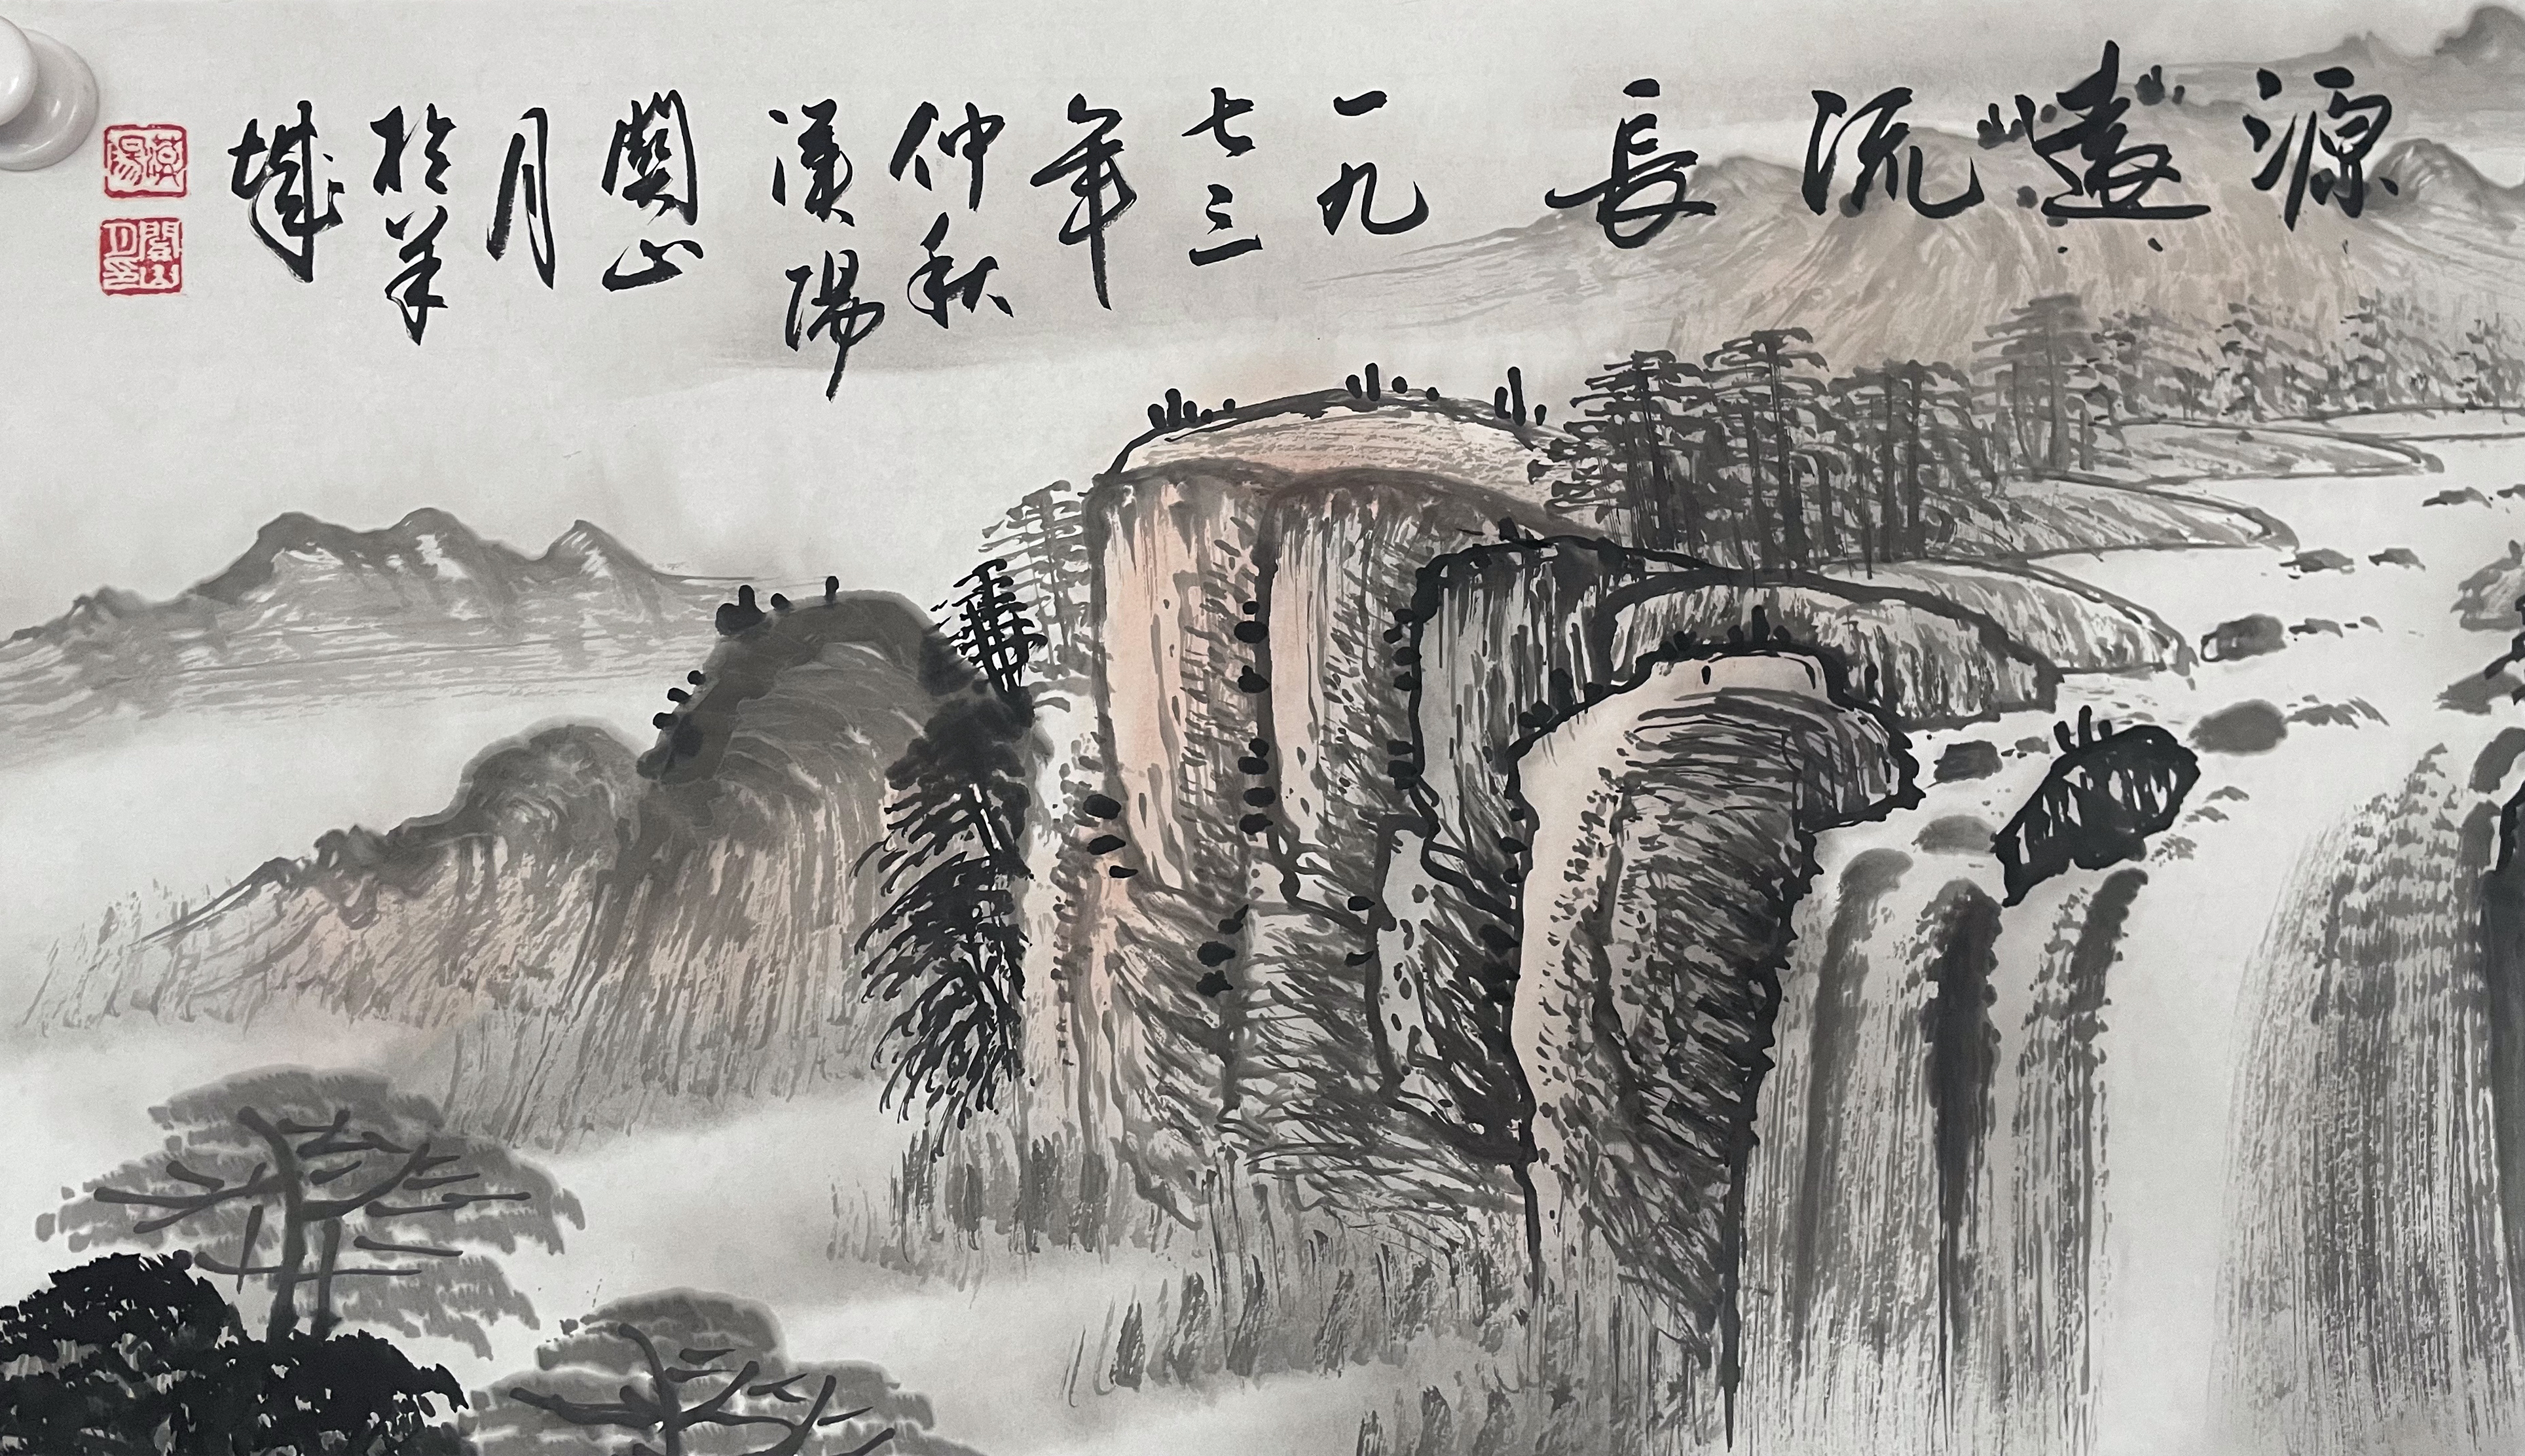 源遠流長
一九七三年仲秋漠陽關山月於羊城
漠陽
關山月印